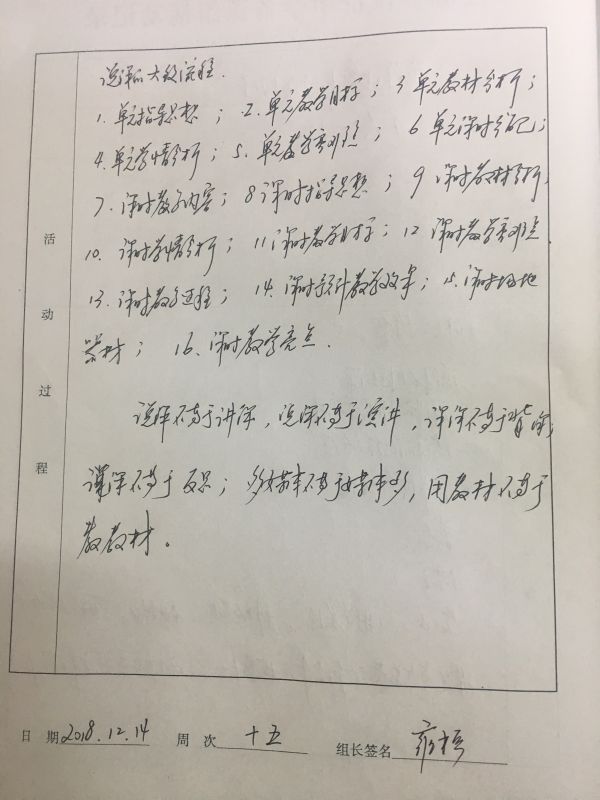 说课的大致流程.
1. 单元指导思想; 2. 单元教学目标; 3 单元教材分析;
4. 单元学情分析; 5. 单元教学重难点; 6 单元课时分配;
7. 课时教学内容; 8 课时指导思想; 9 课时教材分析
10. 课时学情分析; 11 课时教学目标; 12 课时教学重难点.
13. 课时教学过程; 14. 课时预计教学效果; 15. 课时场地
器材; 16. 课时教学亮点.
说课不等于讲课, 说课不等于演讲, 说课不等于背课;
说课不等于反思; 多媒体不等于媒体多, 用教材不等于
教教材。
活动过程
日 期 2018.12.14 周 次 十五 组长签名